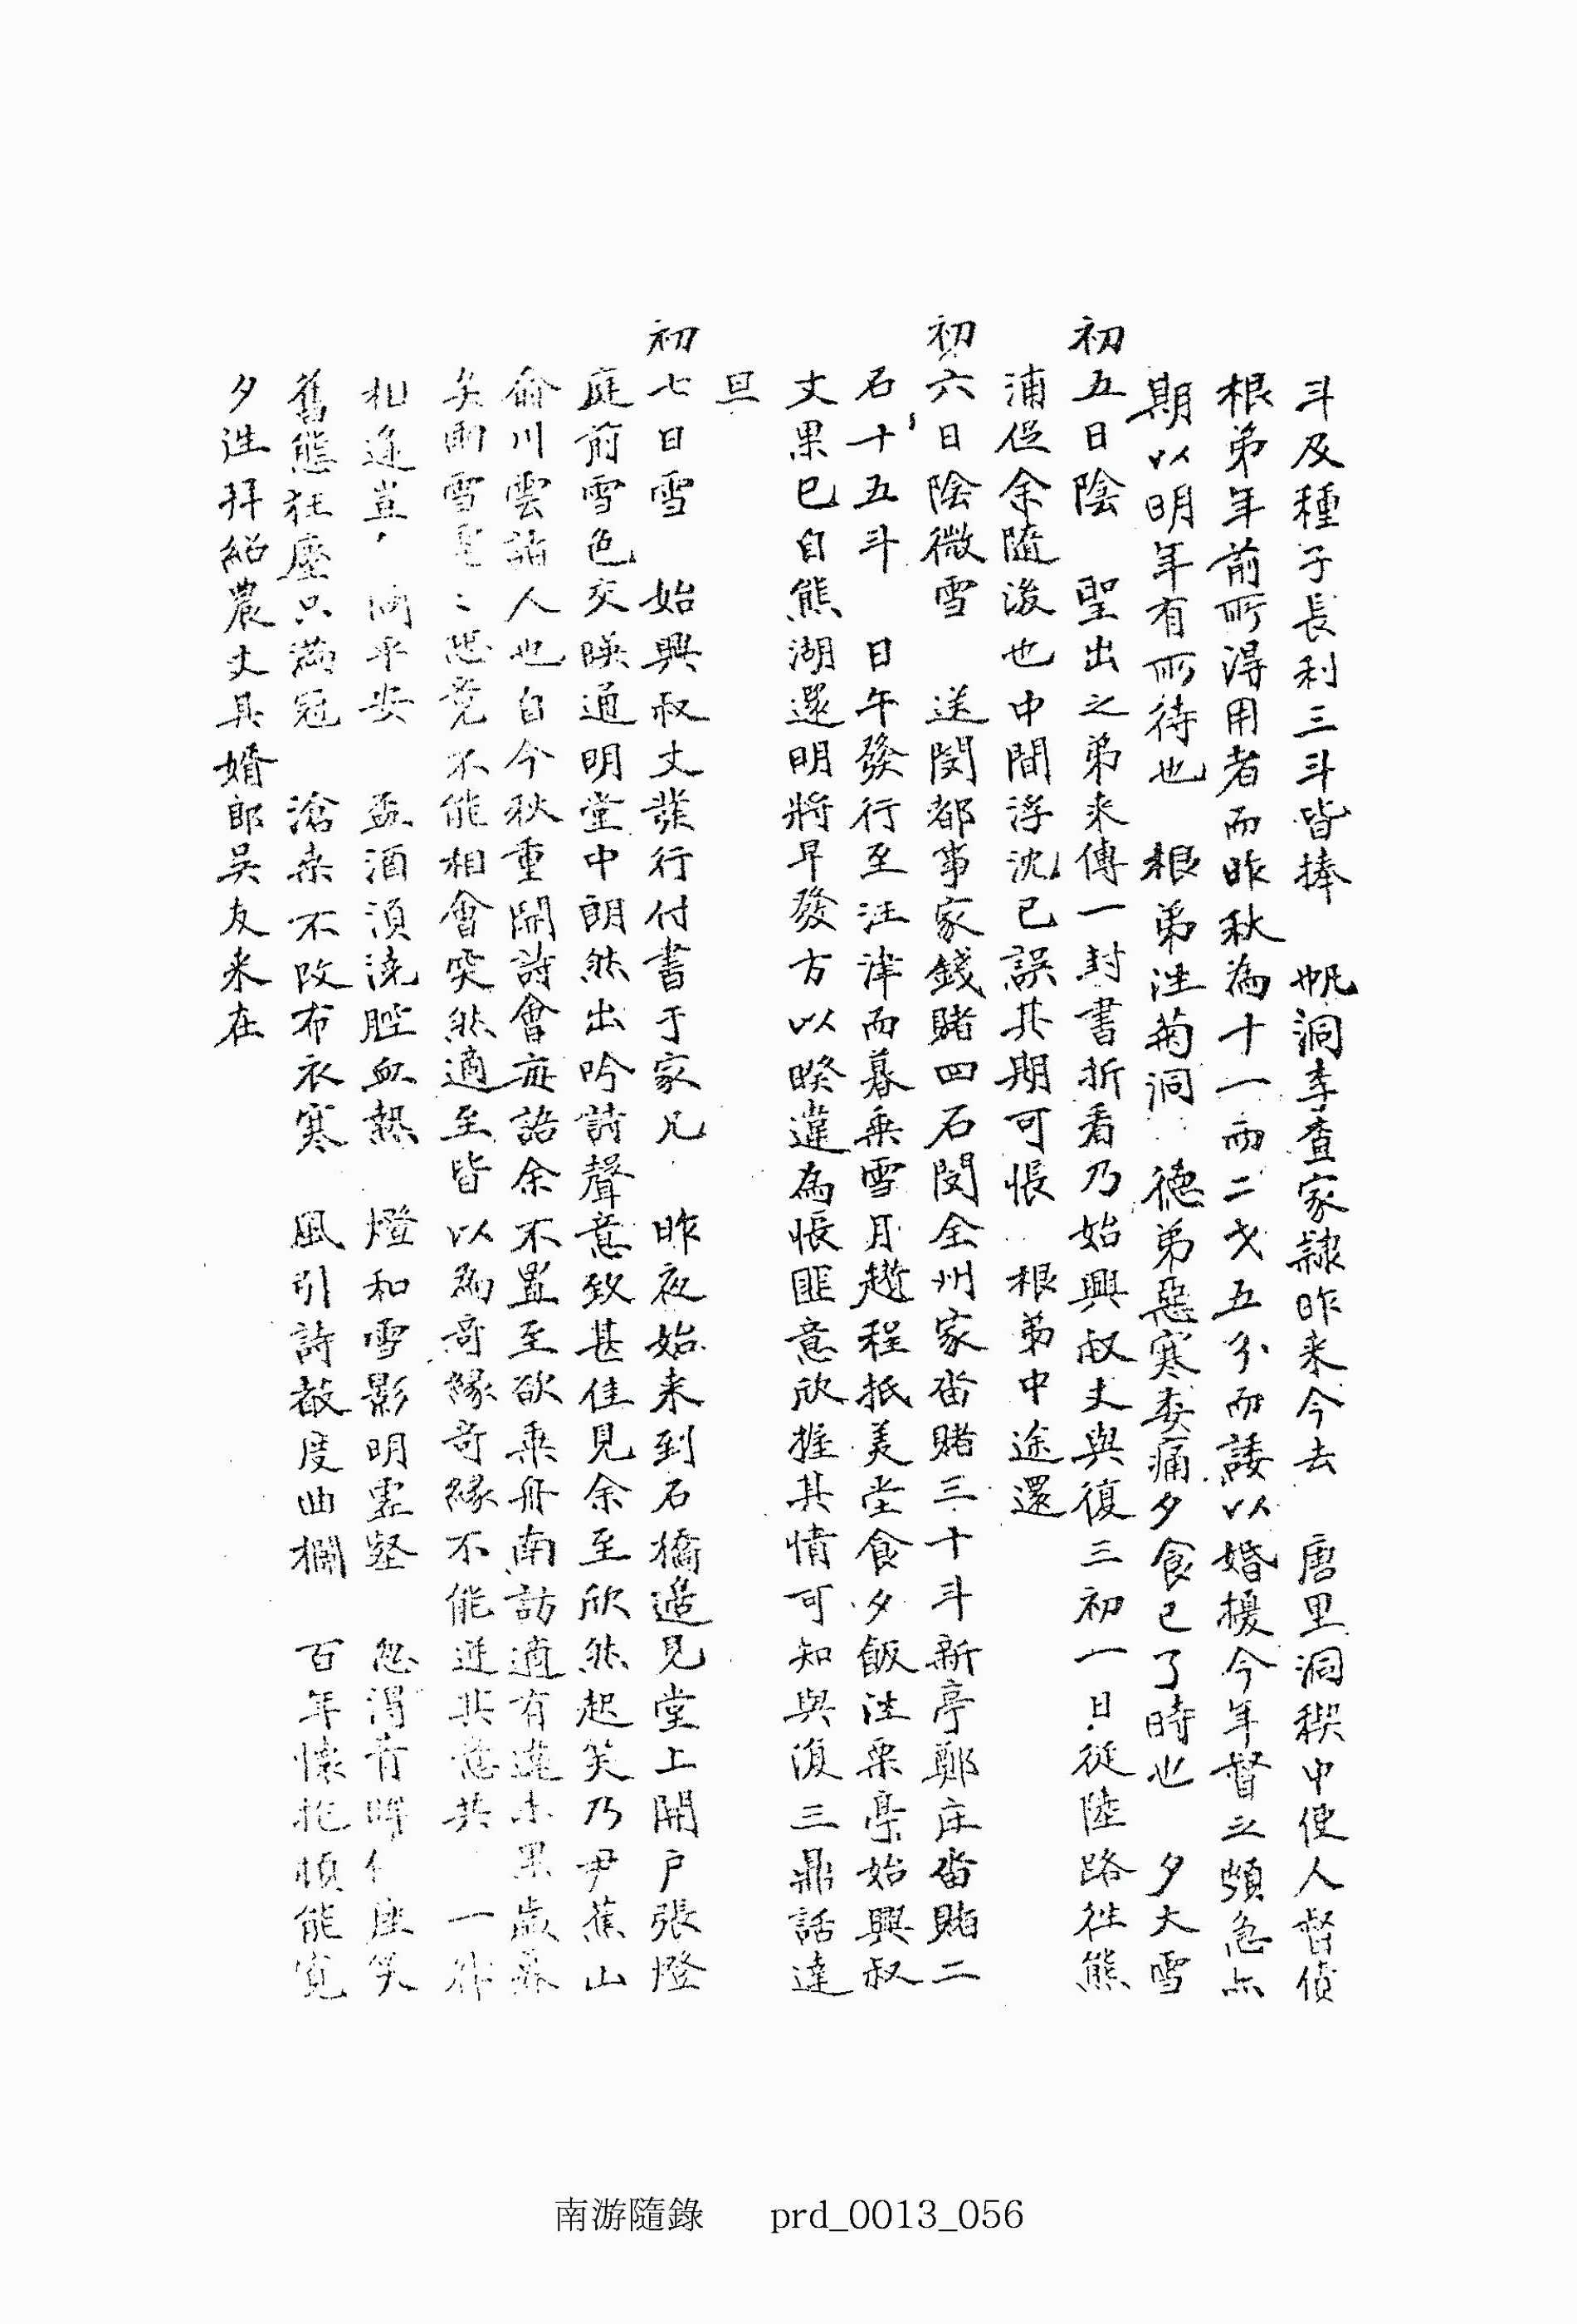 斗及種子長利三斗皆捧 帆洞李查家隷昨来今去 唐里洞稧中使人督債
根弟年前所得用者而昨秋為十一両二戔五分而諉以婚擾今年督之頗急亦
期以明年有所待也 根弟往菊洞 德弟惡寒委痛夕食已了時也 夕大雪
初五日陰 聖出之弟来傳一封書折看乃始興叔丈與復三初一日從陸路徃熊
浦促余隨後也中間浮沈已誤其期可悵 根弟中途還
初六日陰微雪 送閔都事家錢賭四石閔全州家畓賭三十斗新亭鄭庄畓賭二
石十五斗 日午發行至汪津而暮乗雪月趲程抵美堂食夕飯往栗亭始興叔
丈果已自熊湖還明將早發方以暌違為悵匪意欣握其情可知與復三鼎話達
旦
初七日雪 始興叔丈發行付書于家兄 昨夜始来到石橋遥見堂上開戶張燈
庭前雪色交暎通明堂中朗然出吟詩聲意致甚佳見余至欣然起笑乃尹蕉山
俞川雲諸人也自今秋重開詩會每語余不置至欲乗舟南訪適有違未果歲暮
矣雨雪 不能相會突然適至皆以為奇緣奇緣不能 其意共 一
相逢豈 問平安 盃酒須澆腔血熱 燈和雪影明 忽得青眸 座笑
舊態狂塵只滿冠 滄桑不改布衣寒 風引詩 度曲欄 百年懷抱頓能寬
夕往拜紹農丈具婚郎吳友来在
南游隨錄 prd_0013_056